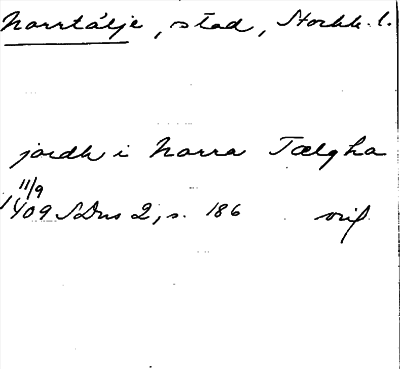 Norrtälje, stad, Stockh. l.
jordh i Norra Tælgha
11/9
1409 SDns 2, s. 186 orig.